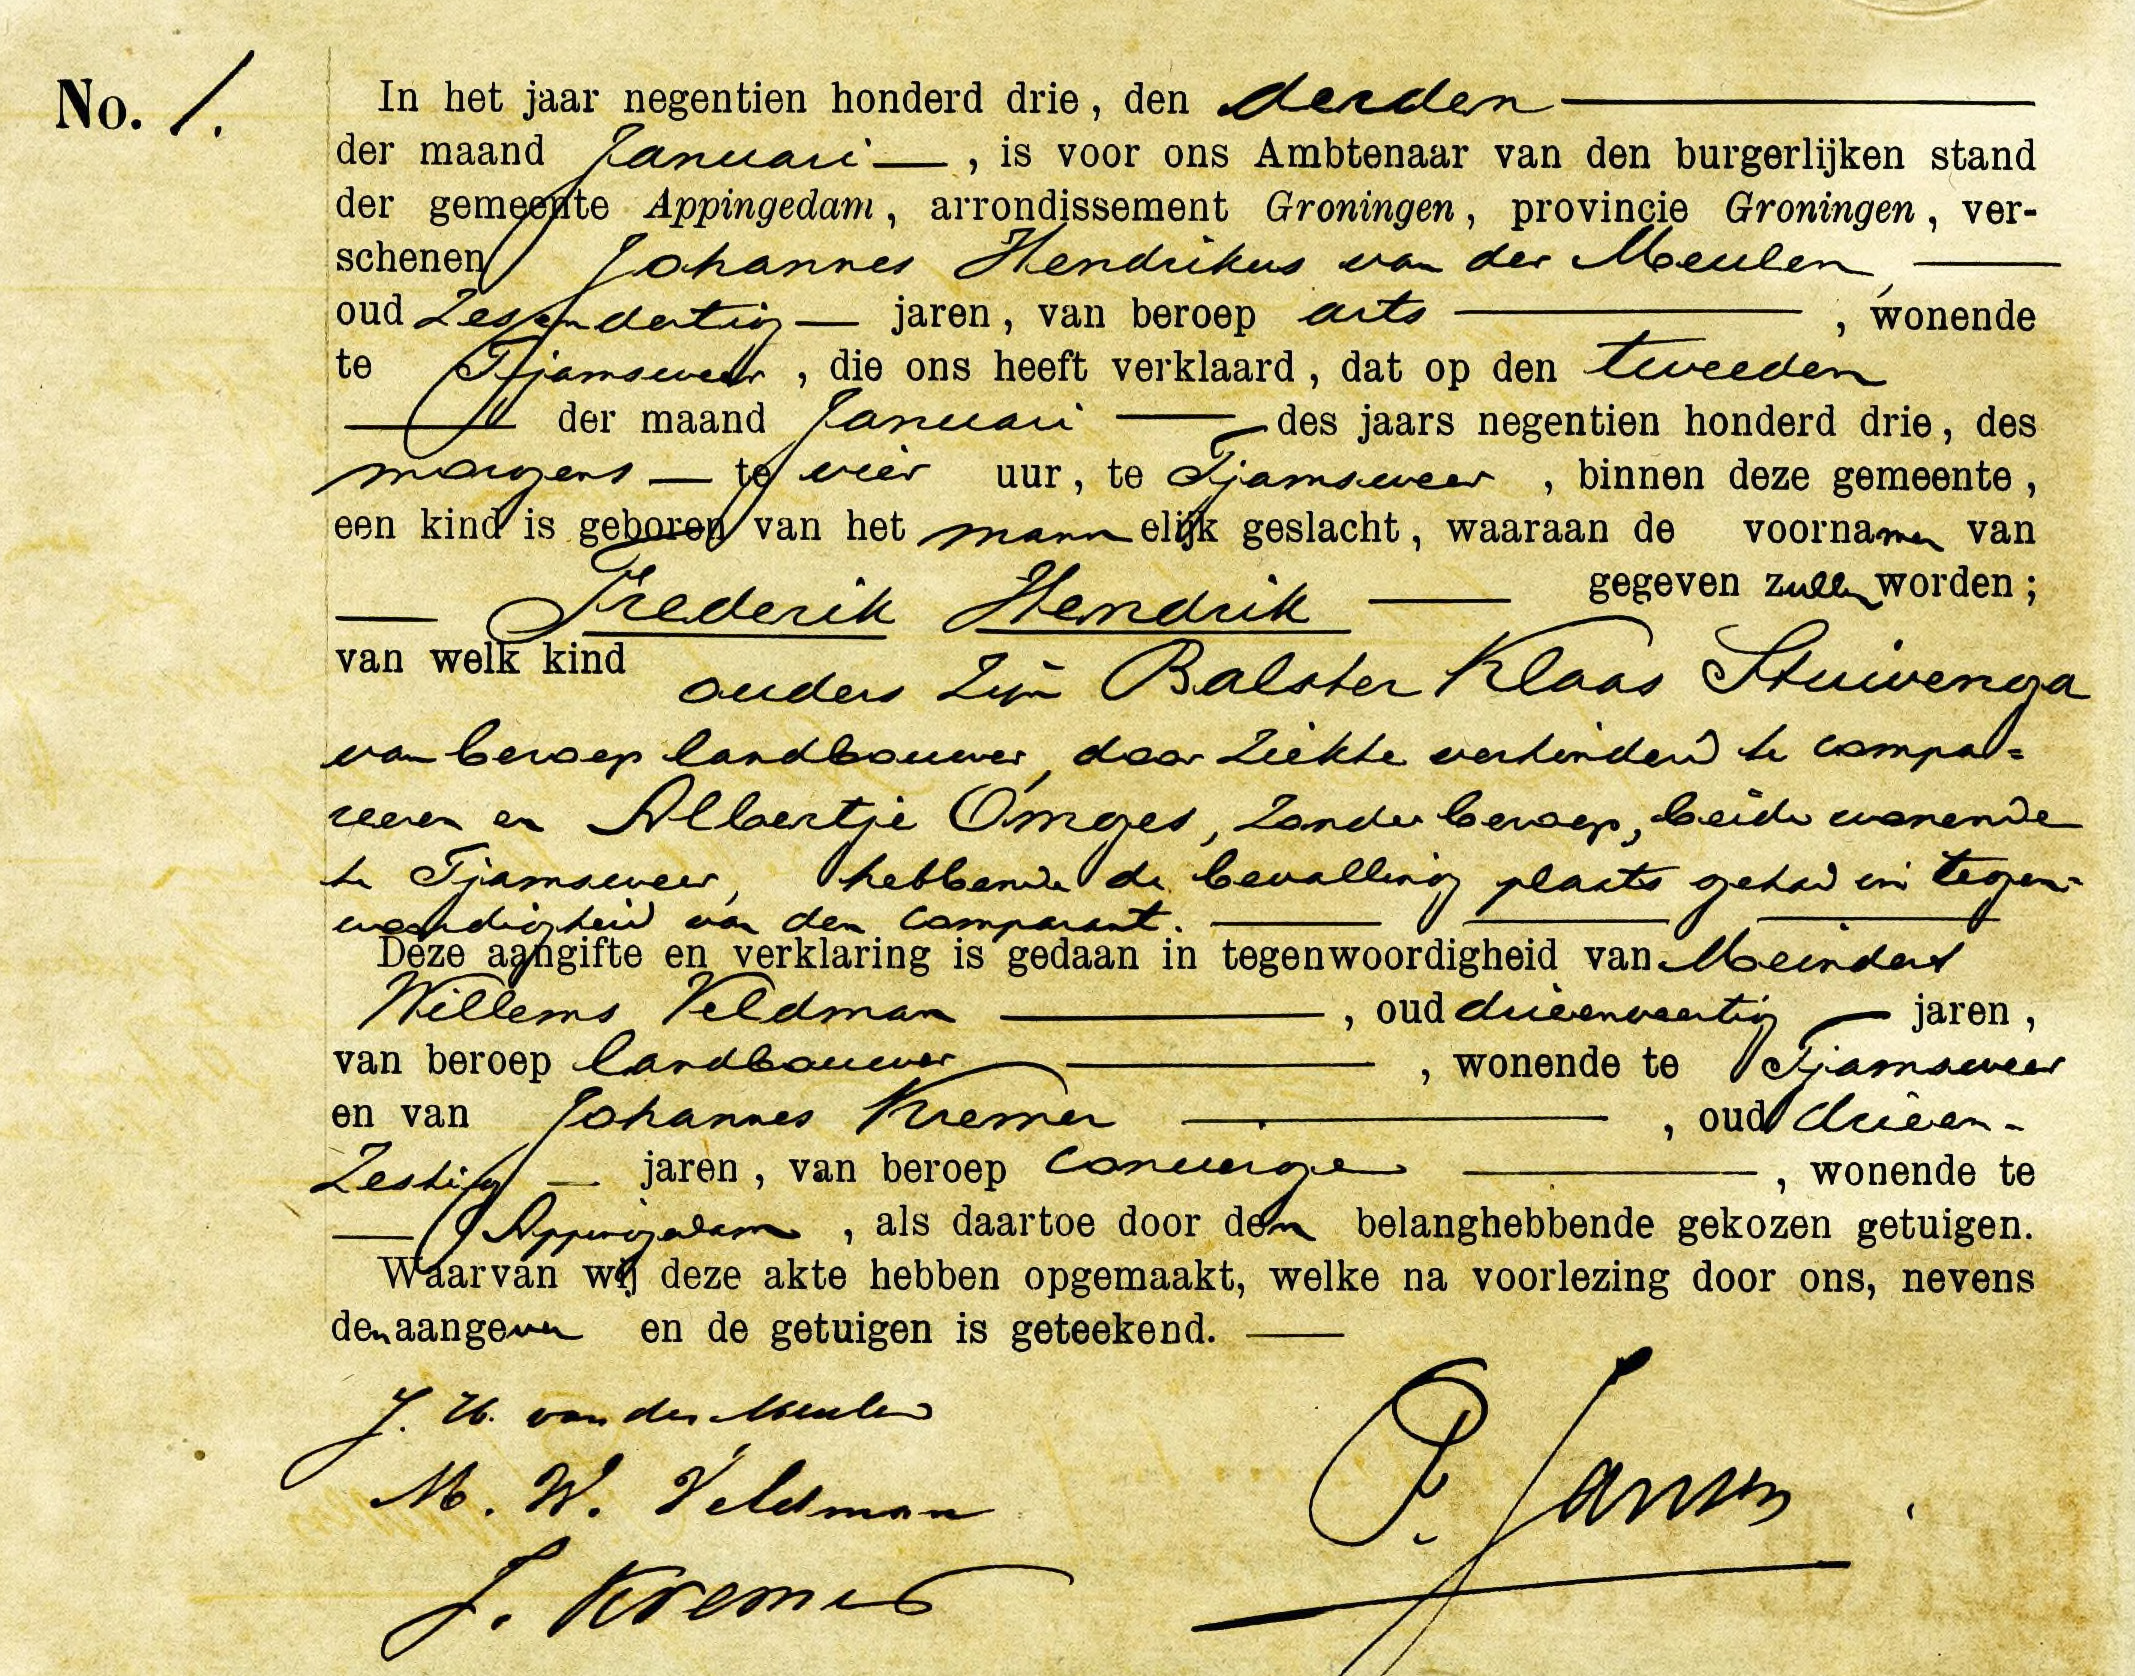 No. 1.
In het jaar negentien honderd drie, den derden
der maand Januari, is voor ons Ambtenaar van den burgerlijken stand
der gemeente Appingedam, arrondissement Groningen, provincie Groningen, ver-
schenen Johannes Hendrikus van der Meulen,
oud Zesendertig jaren, van beroep arts, wonende
te Tjamsweer, die ons heeft verklaard, dat op den tweeden
der maand Januari des jaars negentien honderd drie, des
morgens te vier uur, te Tjamsweer, binnen deze gemeente,
een kind is geboren van het mannelijk geslacht, waaraan de voornamen van
Frederik Hendrik gegeven zullen worden;
van welk kind ouders zijn Balster Klaas Stuivenga
van beroep landbouwer, door ziekte verhinderd te compa=
reeren en Albertje Omges, zonder beroep, beide wonende
te Tjamsweer, hebbende de bevalling plaats gehad in tegen-
woordigheid van den comparant.
Deze aangifte en verklaring is gedaan in tegenwoordigheid van Meindert
Willems Veldman, oud drieenveertig jaren,
van beroep landbouwer, wonende te Tjamsweer
en van Johannes Kremer, oud drieen-
Zestig jaren, van beroep concierge, wonende te
Appingedam, als daartoe door den belanghebbende gekozen getuigen.
Waarvan wij deze akte hebben opgemaakt, welke na voorlezing door ons, nevens
den aangever en de getuigen is geteekend.
J. H. van der Meulen
M. W. Veldman
J. Kremer
P. Jansen